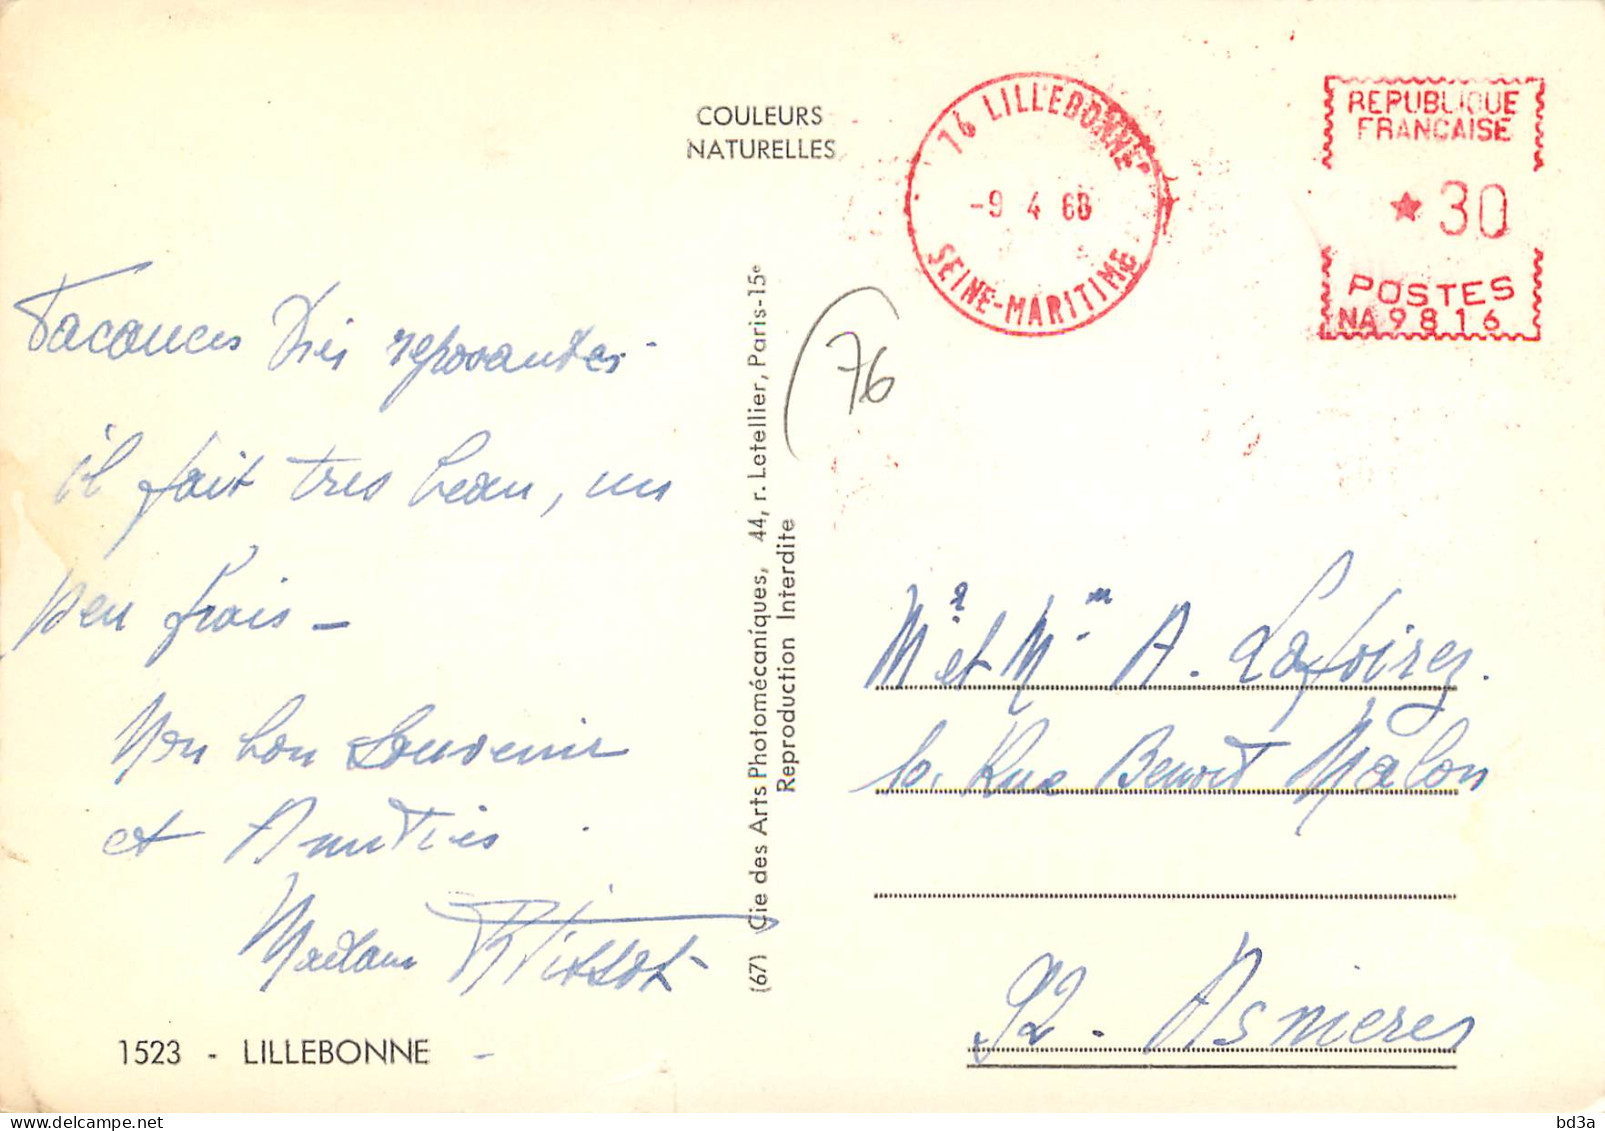 COULEURS
NATURELLES
76 LILLEBONNE
-9 4 68
SEINE-MARITIME
REPUBLIQUE
FRANCAISE
★30
POSTES
NA9816
(76
Vacances très reposantes
il fait tres beau, un
peu frais -
Mon bon Souvenir
et Amitiés
Madame
1523 - LILLEBONNE
(67) Cie des Arts Photomécaniques, 44, r. Letellier, Paris-15e
Reproduction Interdite
Mr et Mme A. Laforrez.
Rue Benoit Malon
92 - Asnieres
bd3a